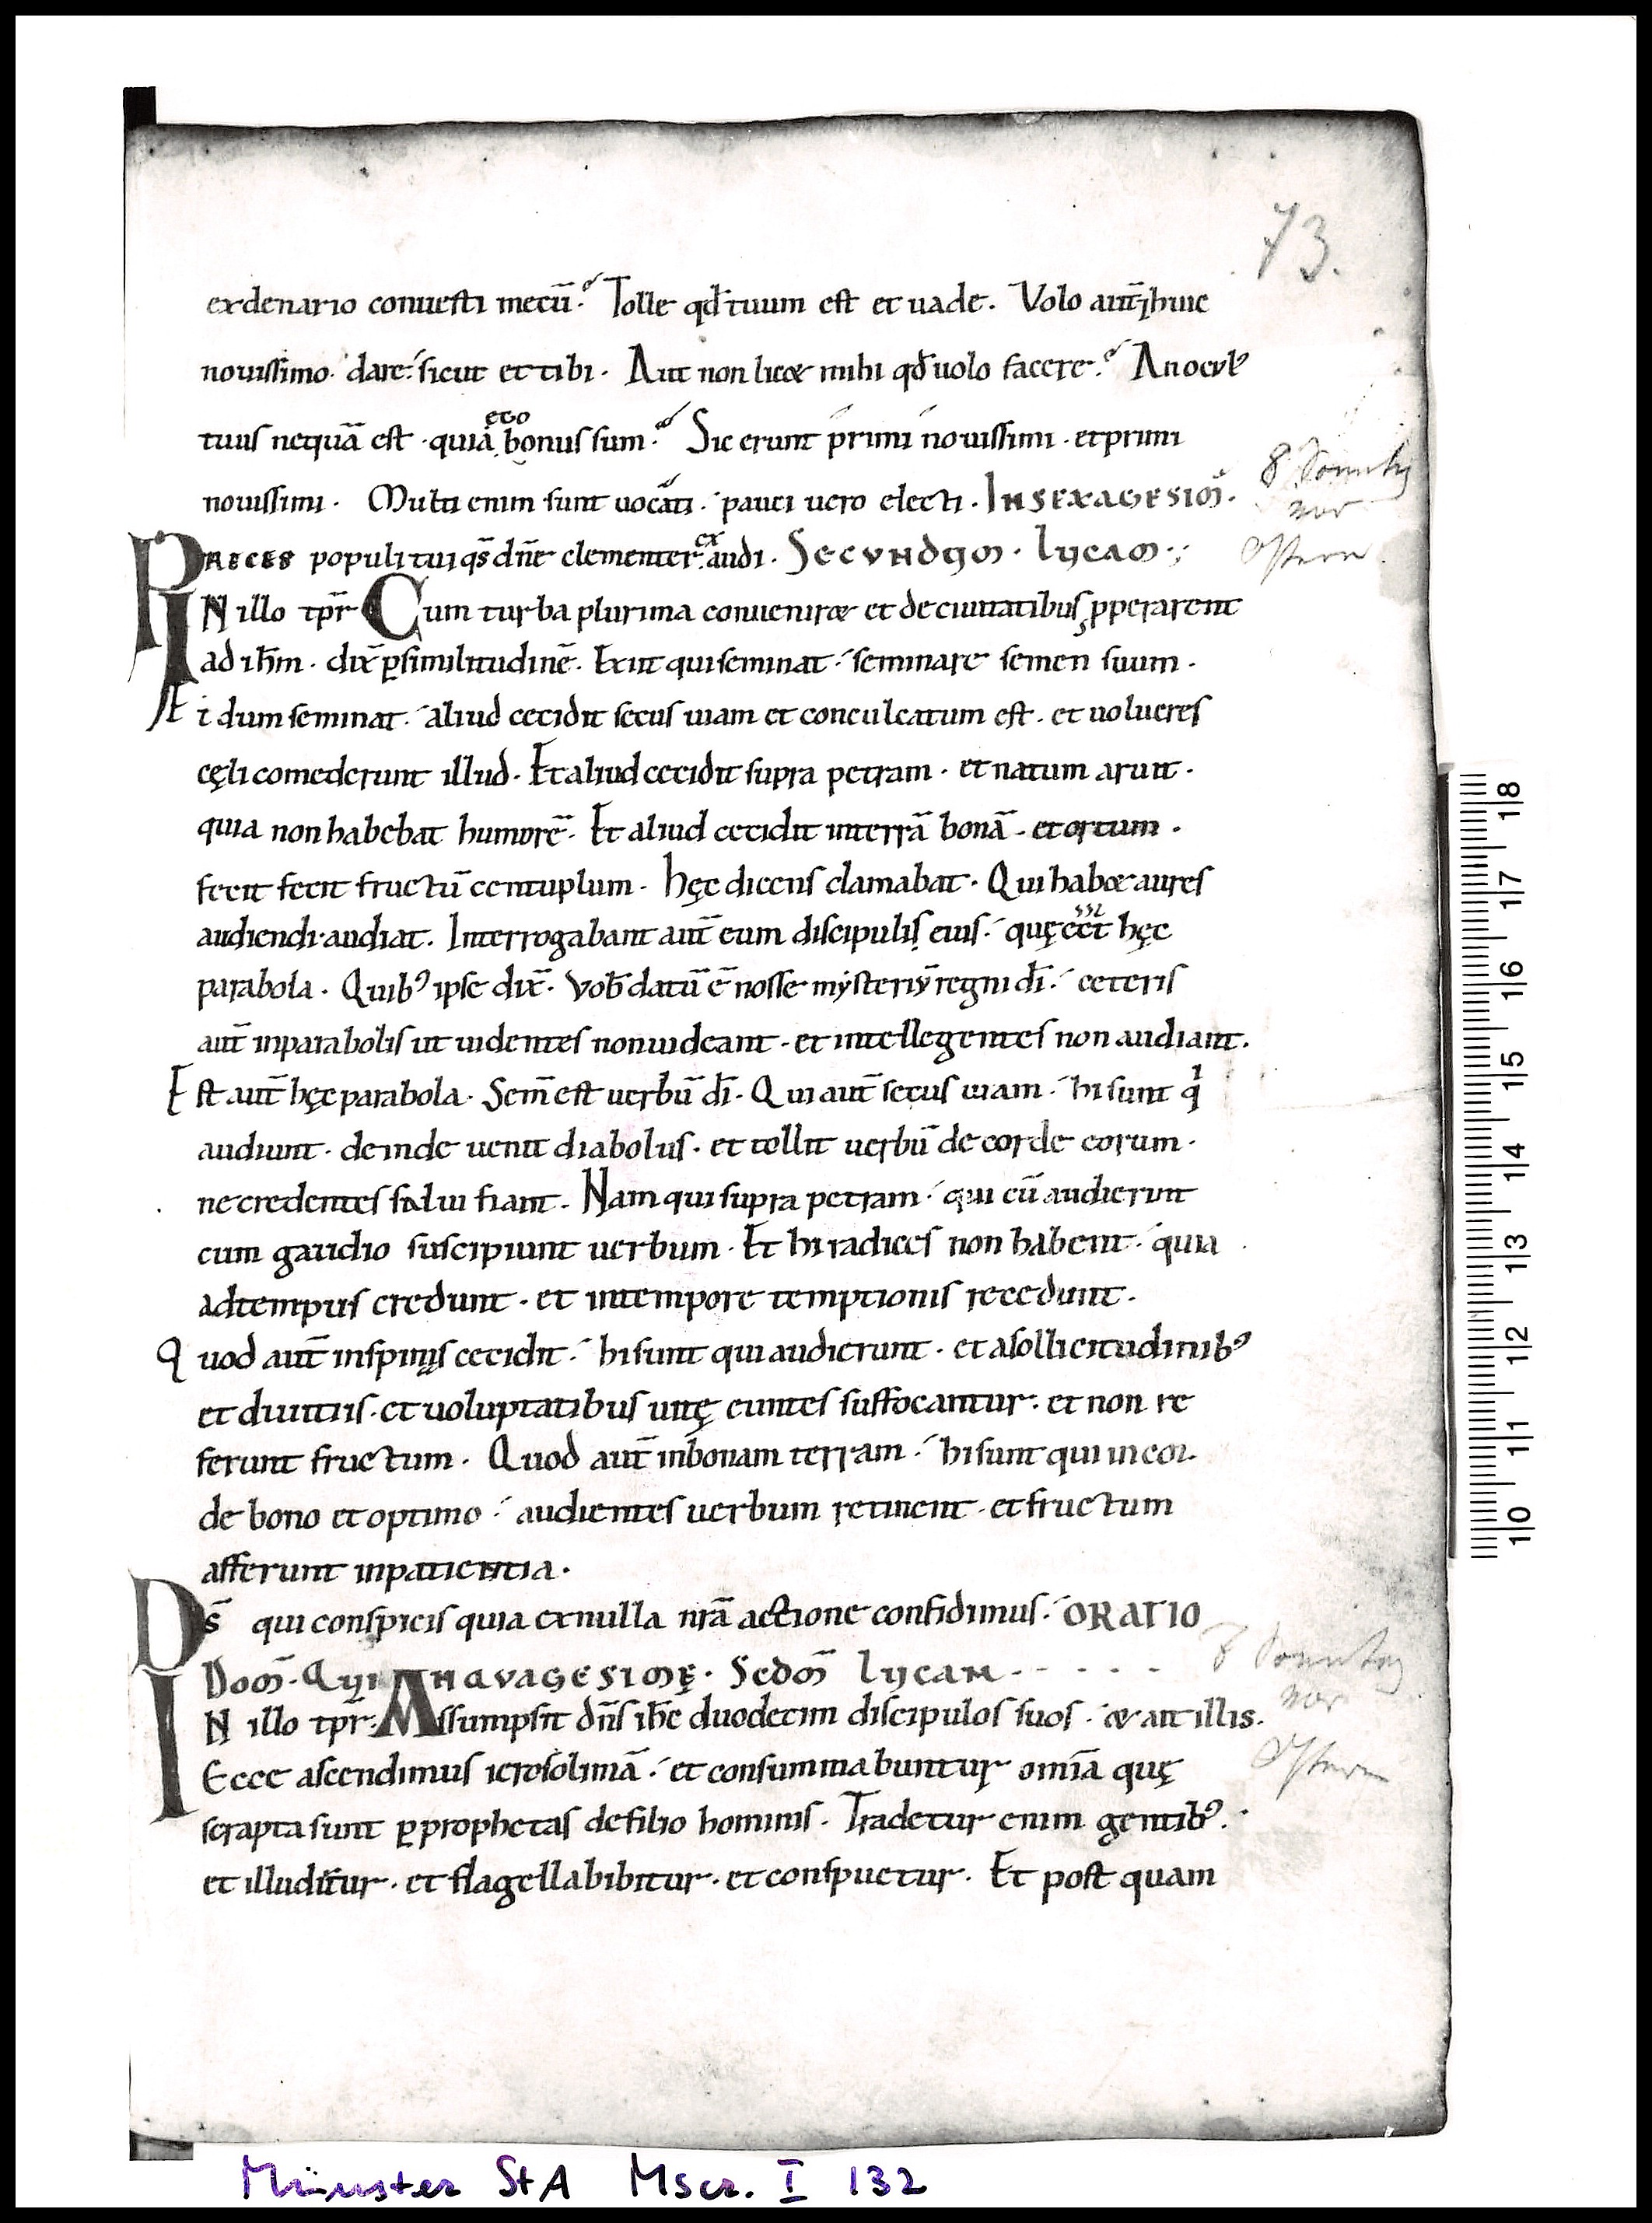 73.
exdenario conuesti mecū. Tolle qđ tuum est et uade. Volo aut̄ & huic
nouissimo dare sicut et tibi. Aut non licet mihi qđ uolo facere. An ocul᾽
tuus nequā est · quia ego bonus sum. Sic erunt primi nouissimi · et primi
nouissimi. Multi enim sunt uocati · pauci uero electi. IN SEXAGESIM̄.
8 Sonntag
vor
Ostern
PRECES populi tui qs̄ dn̄e clementer exaudi. SECVNDUM · LUCAM ·;
IN illo tp̄r Cum turba plurima conueniret et deciuitatibus ꝓperarent
ad ih̄m · dix̄ ꝑsimilitudinē. Exiit quiseminat · seminare semen suum ·
Et dum seminat. aliud cecidit secus uiam et conculcatum est · et uolucres
cęli comederunt illud. Et aliud cecidit supra petram · et natum aruit ·
quia non habebat humorē. Et aliud cecidit interrā bonā · et ortum ·
fecit fecit fructū centuplum. hęc dicens clamabat. Qui habet aures
audiendi audiat. Interrogabant aut̄ eum discipuli, eius · quę eēt hęc
parabola. Quib᾽ ipse dix̄. Vob̄ datū ē nosse mysteriū regni dī · ceteris
aut̄ inparabolis ut uidentes nonuideant · et intellegentes non audiant.
Est aut̄ hęc parabola. Sem̄ est uerbū dī. Qui aut̄ secus uiam · hi sunt qⁱ
audiunt · deinde uenit diabolus · et tollit uerbū de corde eorum ·
ne credentes salui fiant. Nam qui supra petram · qui cū audierunt
cum gaudio suscipiunt uerbum. Et hi radices non habent · quia
adtempus credunt · et intempore temptionis recedunt.
Quod aut̄ inspinis cecidit · hi sunt qui audierunt · et asollicitudinib᾽
et diuitiis · et uoluptatibus uitę euntes suffocantur · et non re
ferunt fructum. Quod aut̄ inbonam terram · hi sunt qui in cor
de bono et optimo · audientes uerbum retinent · et fructum
afferunt inpatientia.
Ds̄ qui conspicis quia exnulla nr̄a actione confidimus. ORATIO
8 Sonntag
vor
Ostern
DOM̄. QUINQVAGESIMĘ. SCDM̄ LUCAM.
IN illo tp̄r. Assumpsit dn̄s ih̄c duodecim discipulos suos · et ait illis.
Ecce ascendimus ierosolimā · et consummabuntur om̄ia quę
scrapta sunt ꝑprophetas defilio hominis. Tradetur enim gentib᾽.
et illudetur · et flagellabibitur · et conspuetur. Et post quam
10 11 12 13 14 15 16 17 18
Münster StA Mscr. I 132